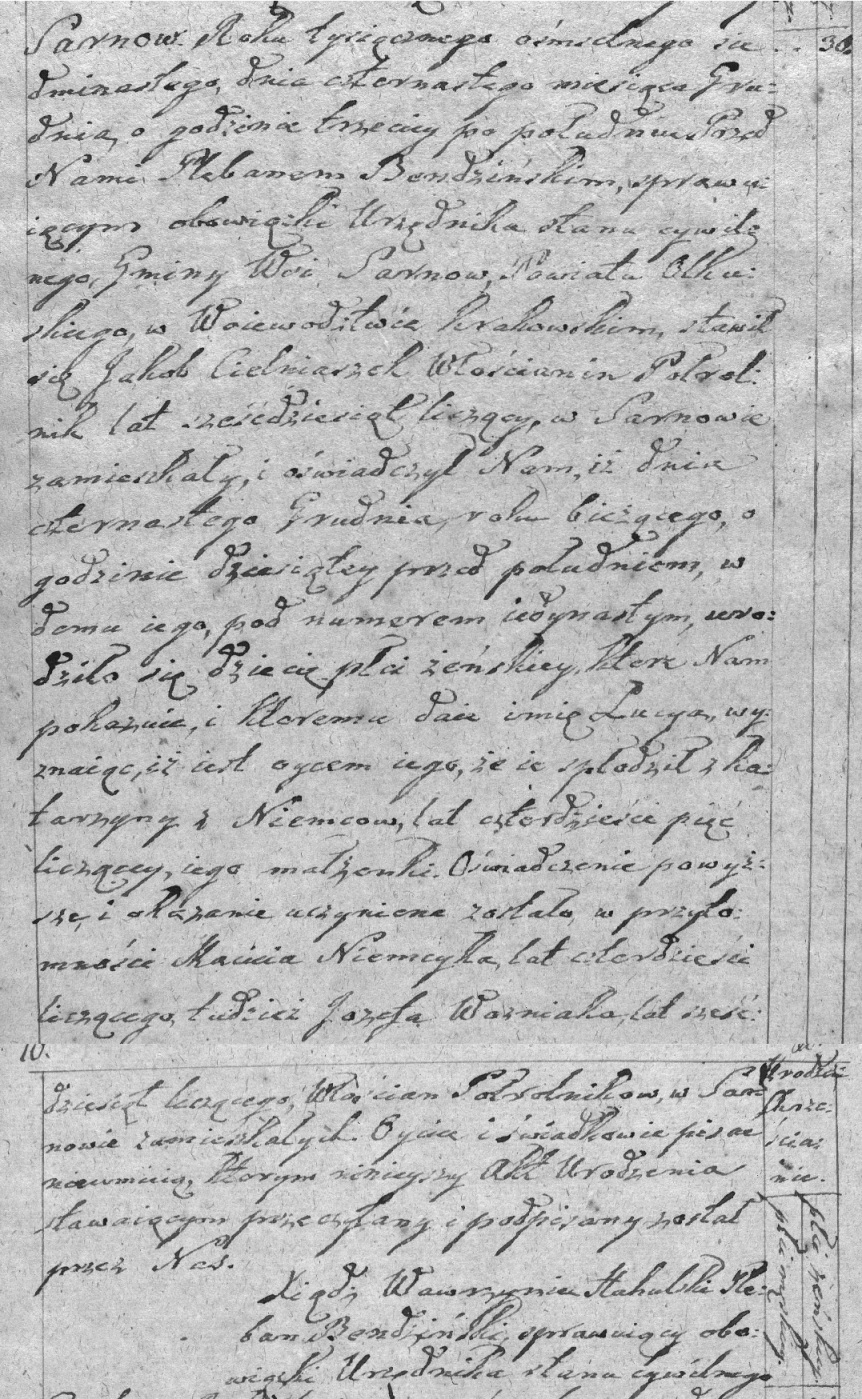 Sarnow. Roku tysiącznego ośmsetnego sie
dminastego, dnia czternastego miesiąca Gru:
dnia, o godzinie trzeciey po południu. Przed
Nami Plebanem Bendzińskim, sprawu:
iącym obowiązki Urzędnika stanu cywil
nego, Gminy Wsi Sarnow, Powiatu Olku:
skiego, w Woiewodztwie Krakowskim, stawił
się Jakob Cieśniaszek Włościanin Połrol:
nik lat sześćdziesiąt liczący, w Sarnowie
zamieszkały, i oświadczył Nam, iż dnia
czternastego Grudnia, roku bieżącego, o
godzinie dziesiątey przed południem, w
domu iego, pod numerem iedynastym, uro:
dziło się dziecię płci żeńskiey, ktore Nam
pokazuie, i ktoremu daie imię Lucya, wy:
znaiąc, iż iest oycem iego, że ie spłodził z Ka:
tarzyny z Niemcow, lat czterdzieści pięć
liczącey, iego małżonki. Oświadczenie powyż:
sze, i okazanie uczynione zostało, w przyto:
mności Macieia Niemczyka, lat czterdzieści
liczącego, tudzież Jozefa Wozniaka, lat sześć:
10.
dziesiąt liczącego, Włościan Połrolnikow, w Sar
nowie zamieszkałych. Oyciec i świadkowie pisać
nieumieią, ktorym ninieyszy Akt Urodzenia
stawaiącym przeczytany i podpisany został
przez Nas.
Xiądz Wawrzyniec Stahulski Ple:
ban Bendziński, sprawuiący obo:
wiązki Urzędnika stanu cywilnego
30.
Urodze:
Chrze:
ścian
nie.
płci męskiey.
płci żeńskiey.